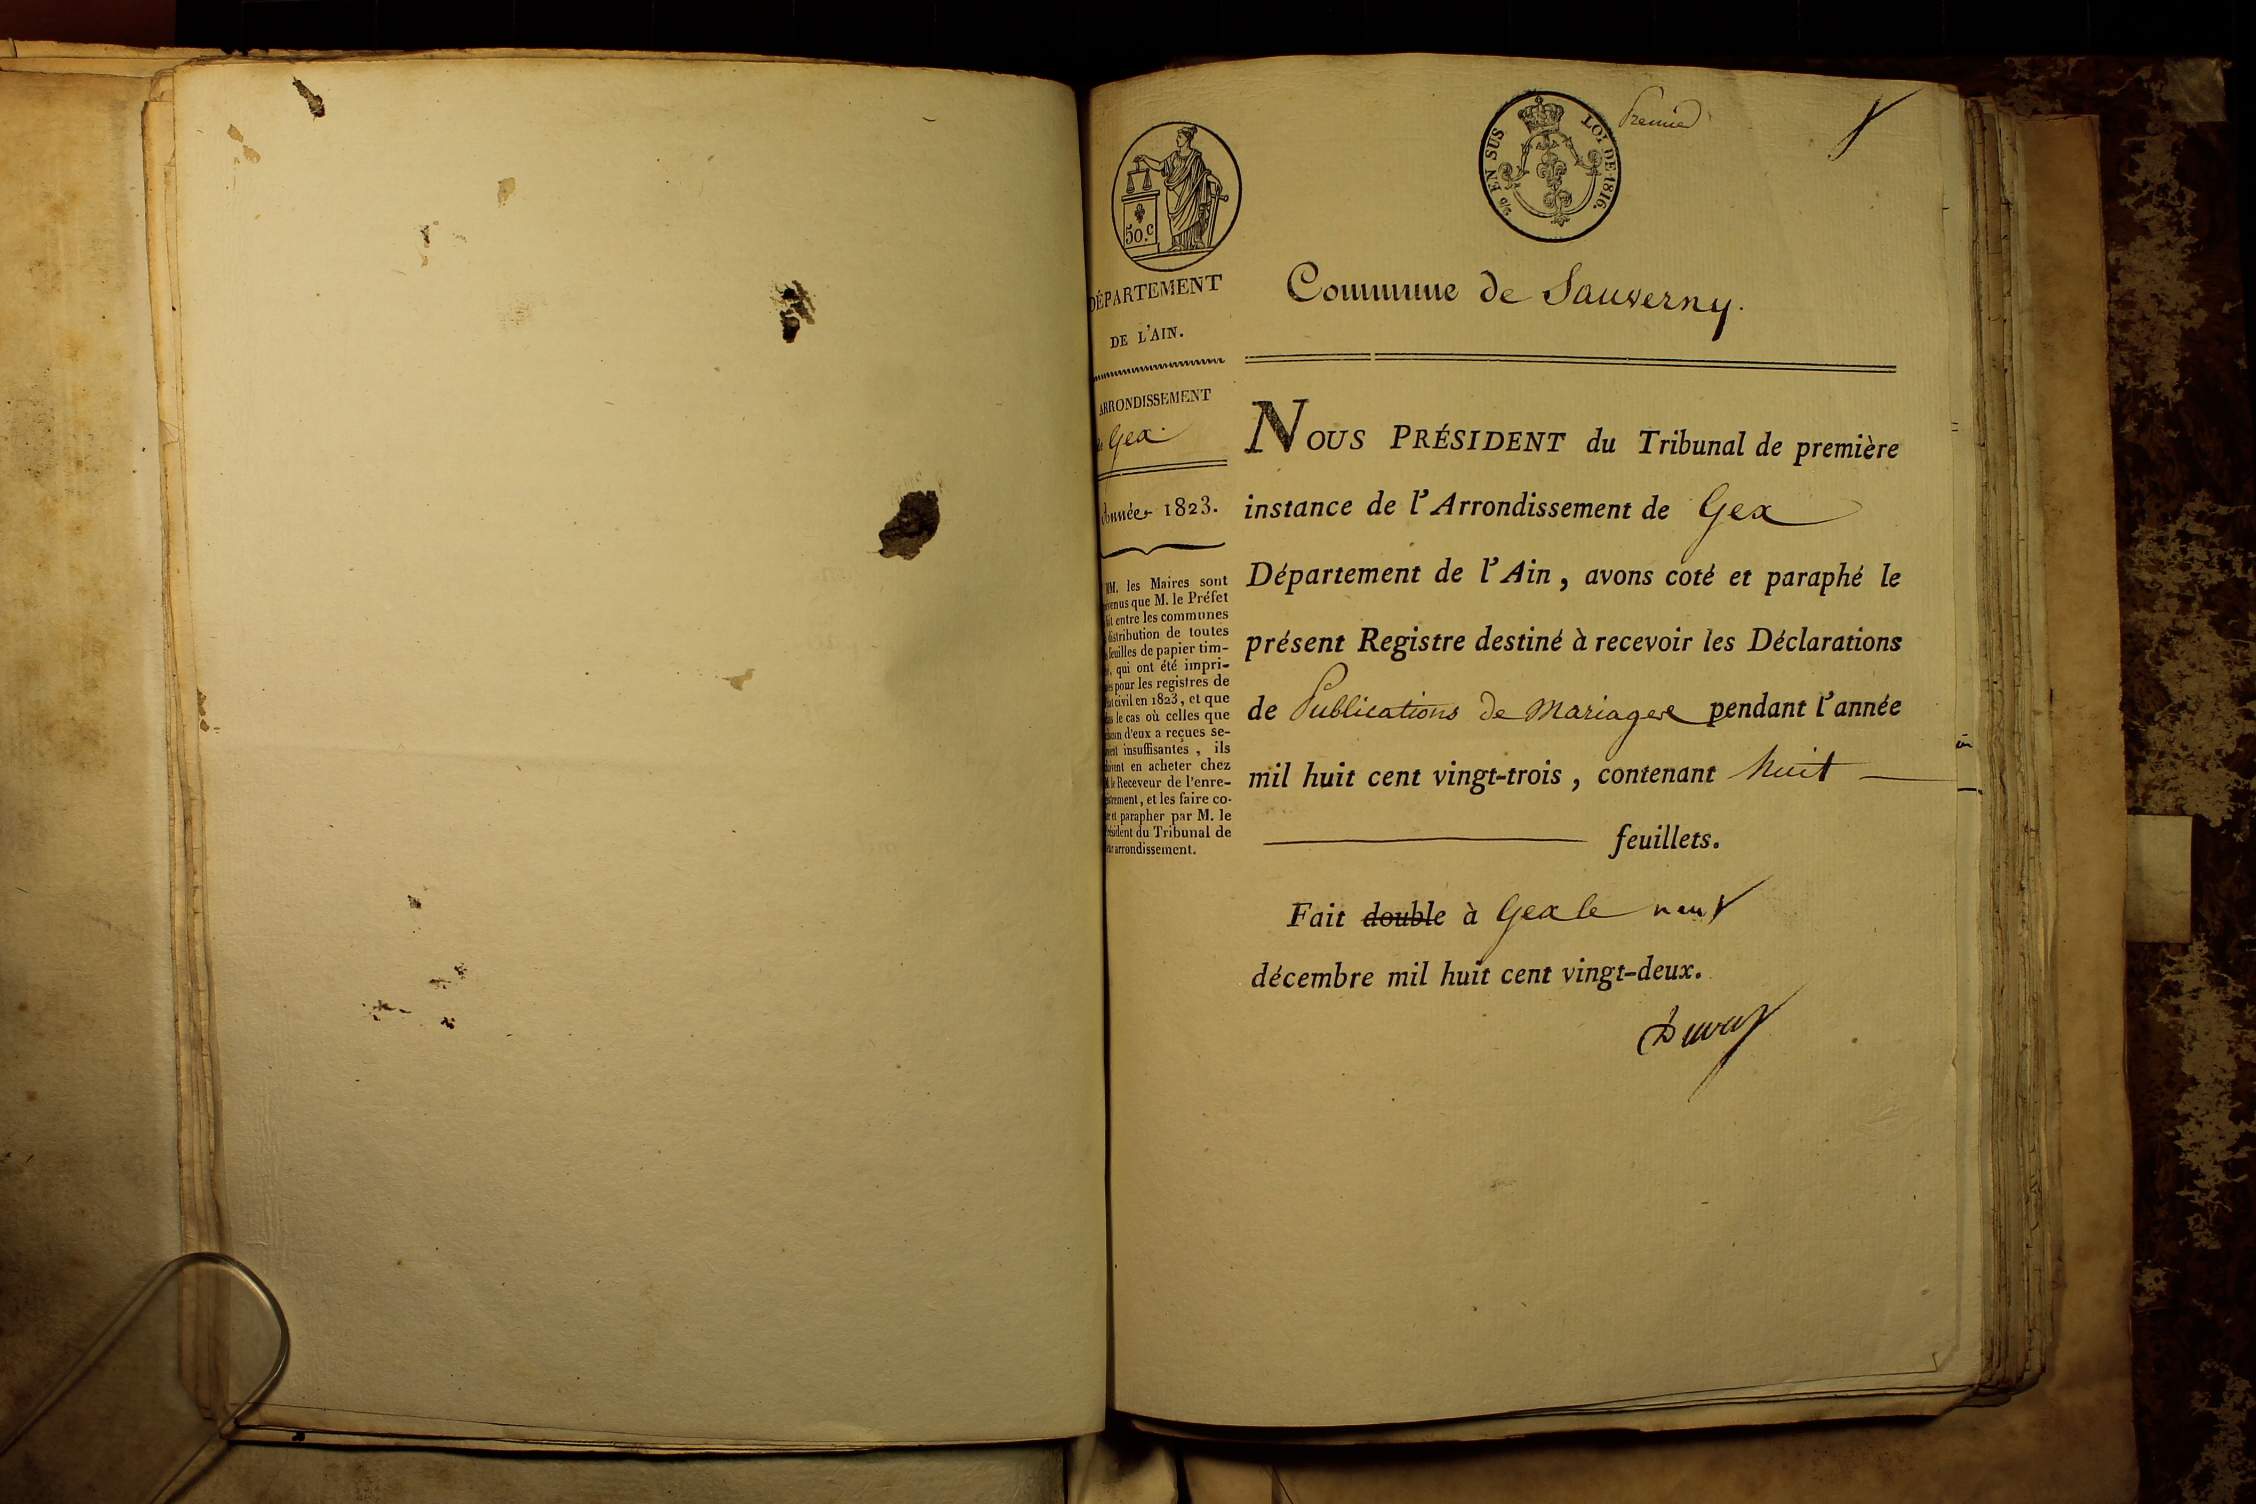 50.c
EN SUS
LOI DE 1816.
Premier
DÉPARTEMENT
DE L'AIN.
ARRONDISSEMENT
de Gex.
Année 1823.
MM. les Maires sont
prévenus que M. le Préfet
fait entre les communes
distribution de toutes
feuilles de papier tim-
qui ont été impri-
pour les registres de
civil en 1823, et que
le cas où celles que
d'eux a reçues se-
insuffisantes, ils
en acheter chez
le Receveur de l'enre-
gistrement, et les faire co-
et parapher par M. le
Président du Tribunal de
arrondissement.
Commune de Sauverny.
NOUS PRÉSIDENT du Tribunal de première
instance de l'Arrondissement de Gex
Département de l'Ain, avons coté et paraphé le
présent Registre destiné à recevoir les Déclarations
de Publications de Mariages pendant l'année
mil huit cent vingt-trois, contenant huit
feuillets.
Fait double à Gex le neuf
décembre mil huit cent vingt-deux.